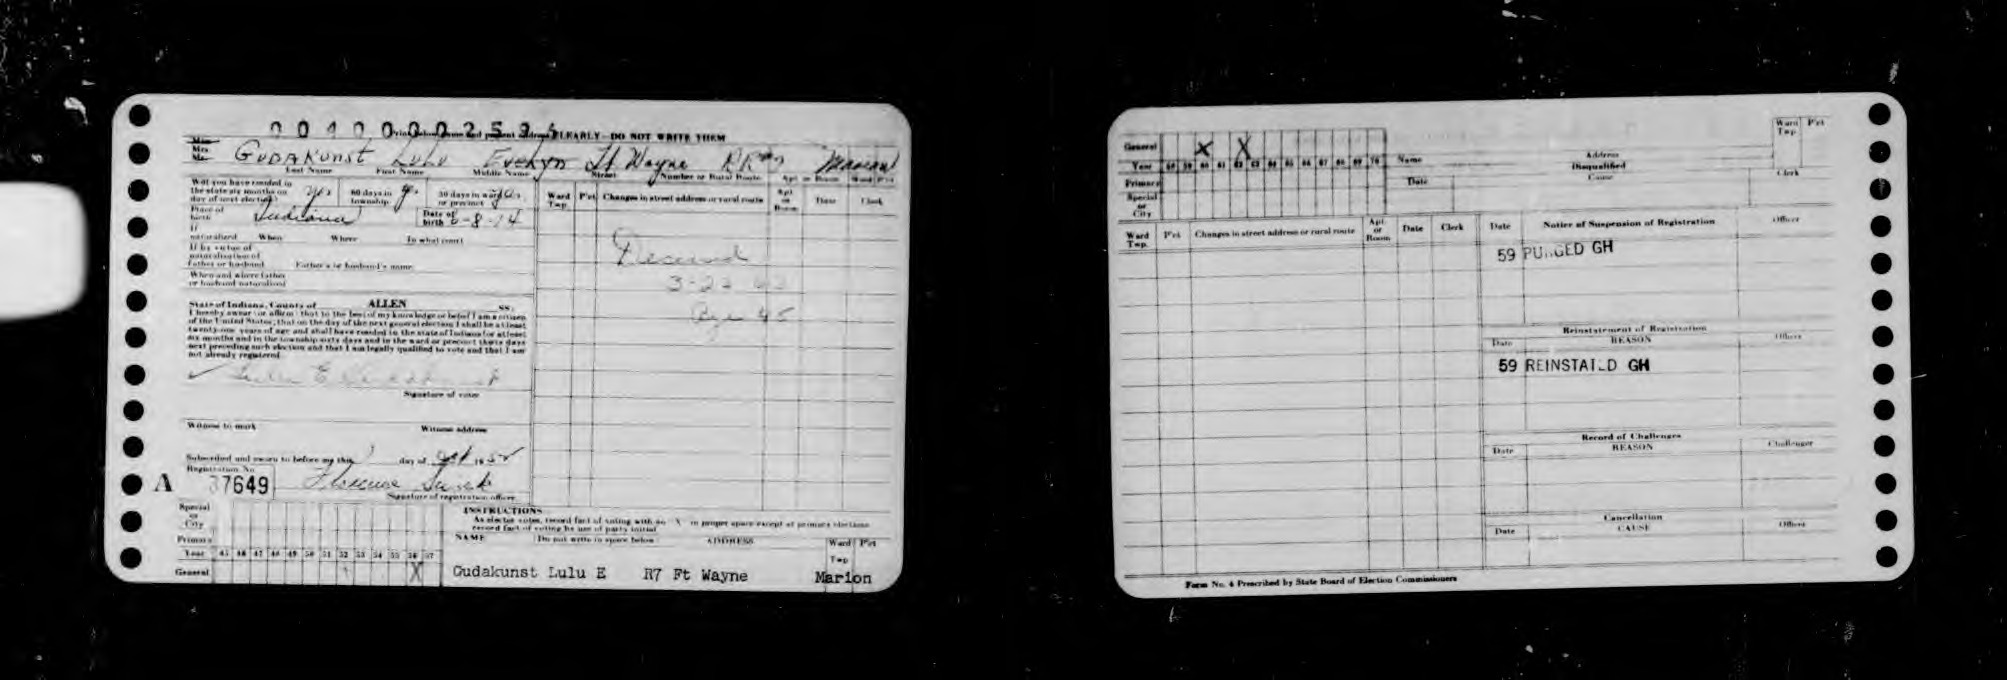 0 0 1 0 0 0 0 2 5 3 5
CLEARLY—DO NOT WRITE THEM
Mrs. GUDAKUNST LULU Evelyn Ft Wayne RR 7 Marian
Last Name First Name Middle Name Street Number or Rural Route Apt. or Room Ward P'ct
Will you have resided in the state six months on day of next election? yes 60 days in township 30 days in ward or precinct yes
Place of birth Indiana Date of birth 6-8-14
If naturalized When Where In what court
If by virtue of naturalization of father or husband Father's or husband's name
When and where father or husband naturalized
State of Indiana, County of ALLEN SS:
I hereby swear (or affirm) that to the best of my knowledge or belief I am a citizen
of the United States; that on the day of the next general election I shall be at least
twenty-one years of age and shall have resided in the state of Indiana for at least
six months and in the township sixty days and in the ward or precinct thirty days
next preceding such election and that I am legally qualified to vote and that I am
not already registered
Signature of voter
Witness to mark Witness address
Subscribed and sworn to before me this day of 19 52
Registration No.
A 37649 Florence
Signature of registration officer
Special or City
Primary
Year 45 46 47 48 49 50 51 52 53 54 55 56 57
General X
Ward Twp. P'ct Changes in street address or rural route Apt. or Room Date Clerk
Deceased
3-22
Age 45
INSTRUCTIONS
As elector votes, record fact of voting with an X in proper space except at primary elections
record fact of voting by use of party initial
NAME Do not write in space below ADDRESS Ward Twp P'ct
Gudakunst Lulu E R7 Ft Wayne Marion
General X X
Year 58 59 60 61 62 63 64 65 66 67 68 69 70
Primary
Special or City
Name Address Ward Twp. P'ct
Disqualified
Date Cause Clerk
Ward Twp. P'ct Changes in street address or rural route Apt. or Room Date Clerk
Date Notice of Suspension of Registration Officer
59 PURGED GH
Reinstatement of Registration
Date REASON Officer
59 REINSTATED GH
Record of Challenges
Date REASON Challenger
Cancellation
Date CAUSE Officer
Form No. 4 Prescribed by State Board of Election Commissioners